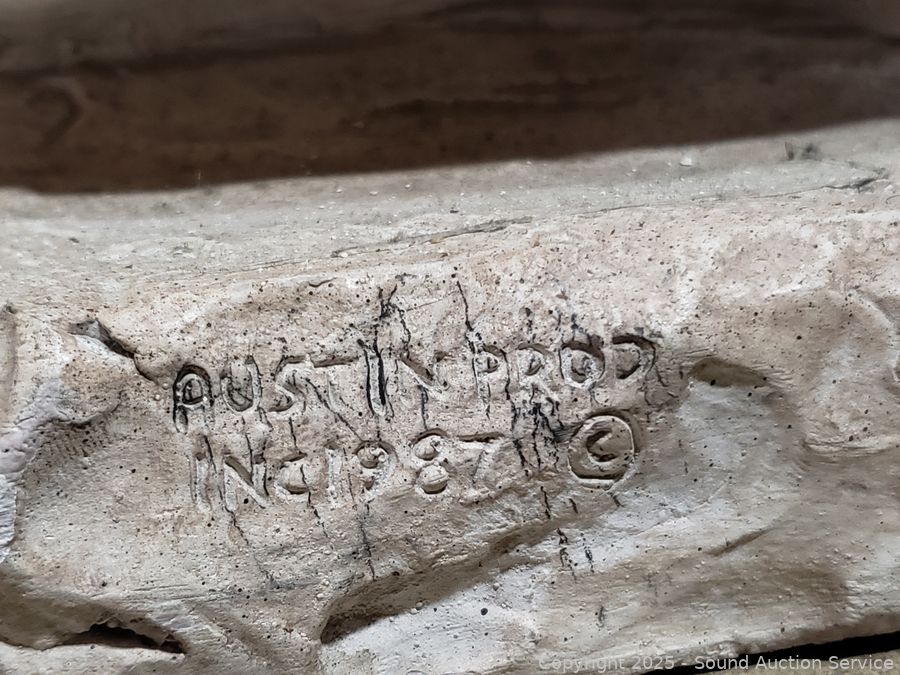 AUSTIN PROD
INC 1987 ©
Copyright 2025 - Sound Auction Service